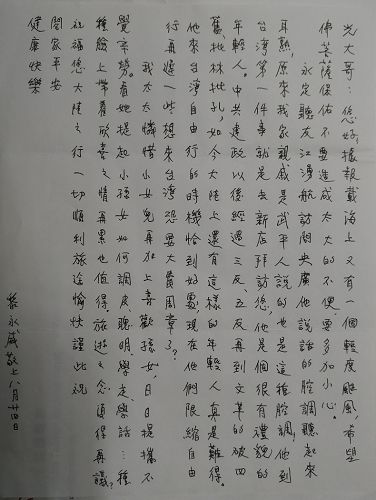 光大哥：您好，據報載海上又有一個輕度颱風，希望
佛菩薩保佑不要造成太大的不便，要多加小心。
永定聽友江湧航訪問央廣他說話的腔調聽起來
耳熟，原來我家親戚是武平人說的也是這種腔調，他到
台灣第一件事就是去新店拜訪您，他是個很有禮貌的
年輕人。中共建政以後經過三反、五反再到文革的破四
舊、批林批孔，如今大陸上還有這樣的年輕人真是難得。
他來台灣自由行的時機恰到好處，現在他們限縮自由
行再遲一些想來台灣恐要大費周章了？
我太太憐惜小女兒再加上喜歡孫女，日日提攜不
覺辛勞。看她提起小孫女如何調皮、聰明、學走、學話…種
種臉上帶着欣喜之情再累也值得，旅遊之念值得再議。
祝福您大陸之行一切順利旅途愉快謹此祝
閤家平安
健康快樂
永咸敬上八月廿四日